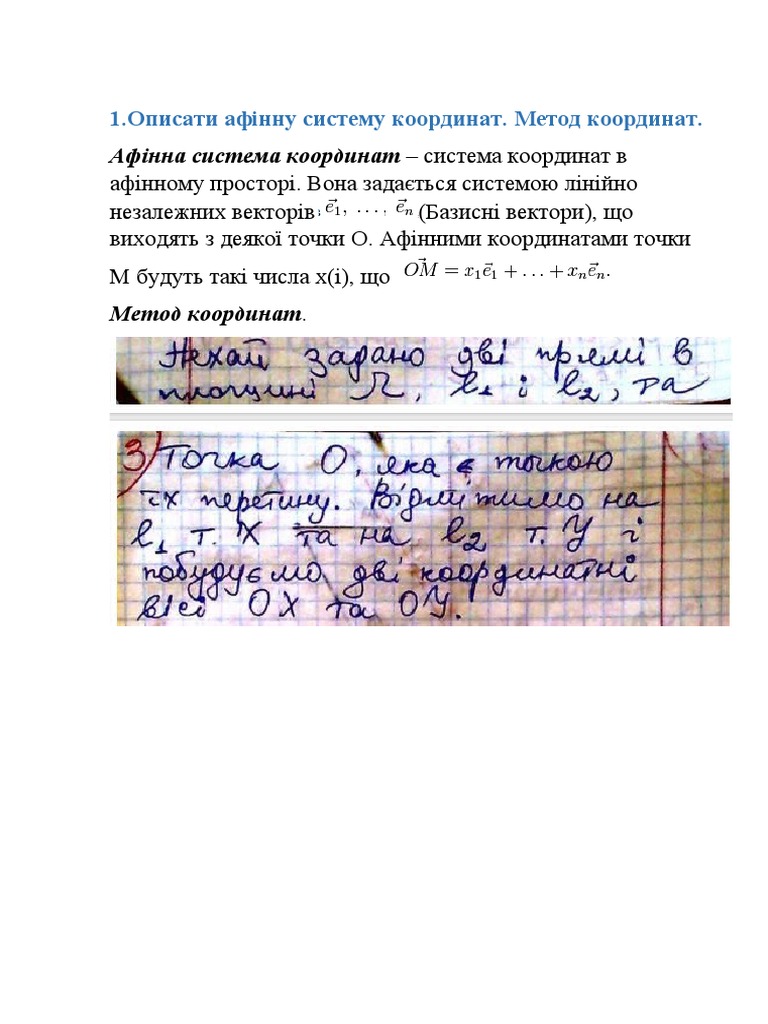 1.Описати афінну систему координат. Метод координат.
Афінна система координат – система координат в
афінному просторі. Вона задається системою лінійно
незалежних векторів ; e⃗₁, ..., e⃗ₙ (Базисні вектори), що
виходять з деякої точки О. Афінними координатами точки
М будуть такі числа x(i), що OM⃗ = x₁e⃗₁ + ... + xₙe⃗ₙ.
Метод координат.
Нехай задано дві прямі в
площині П, l₁ і l₂, та
3) Точка О, яка є точкою
їх перетину. Відмітимо на
l₁ т. X та на l₂ т. У і
побудуємо дві координатні
вісі ОХ та ОУ.